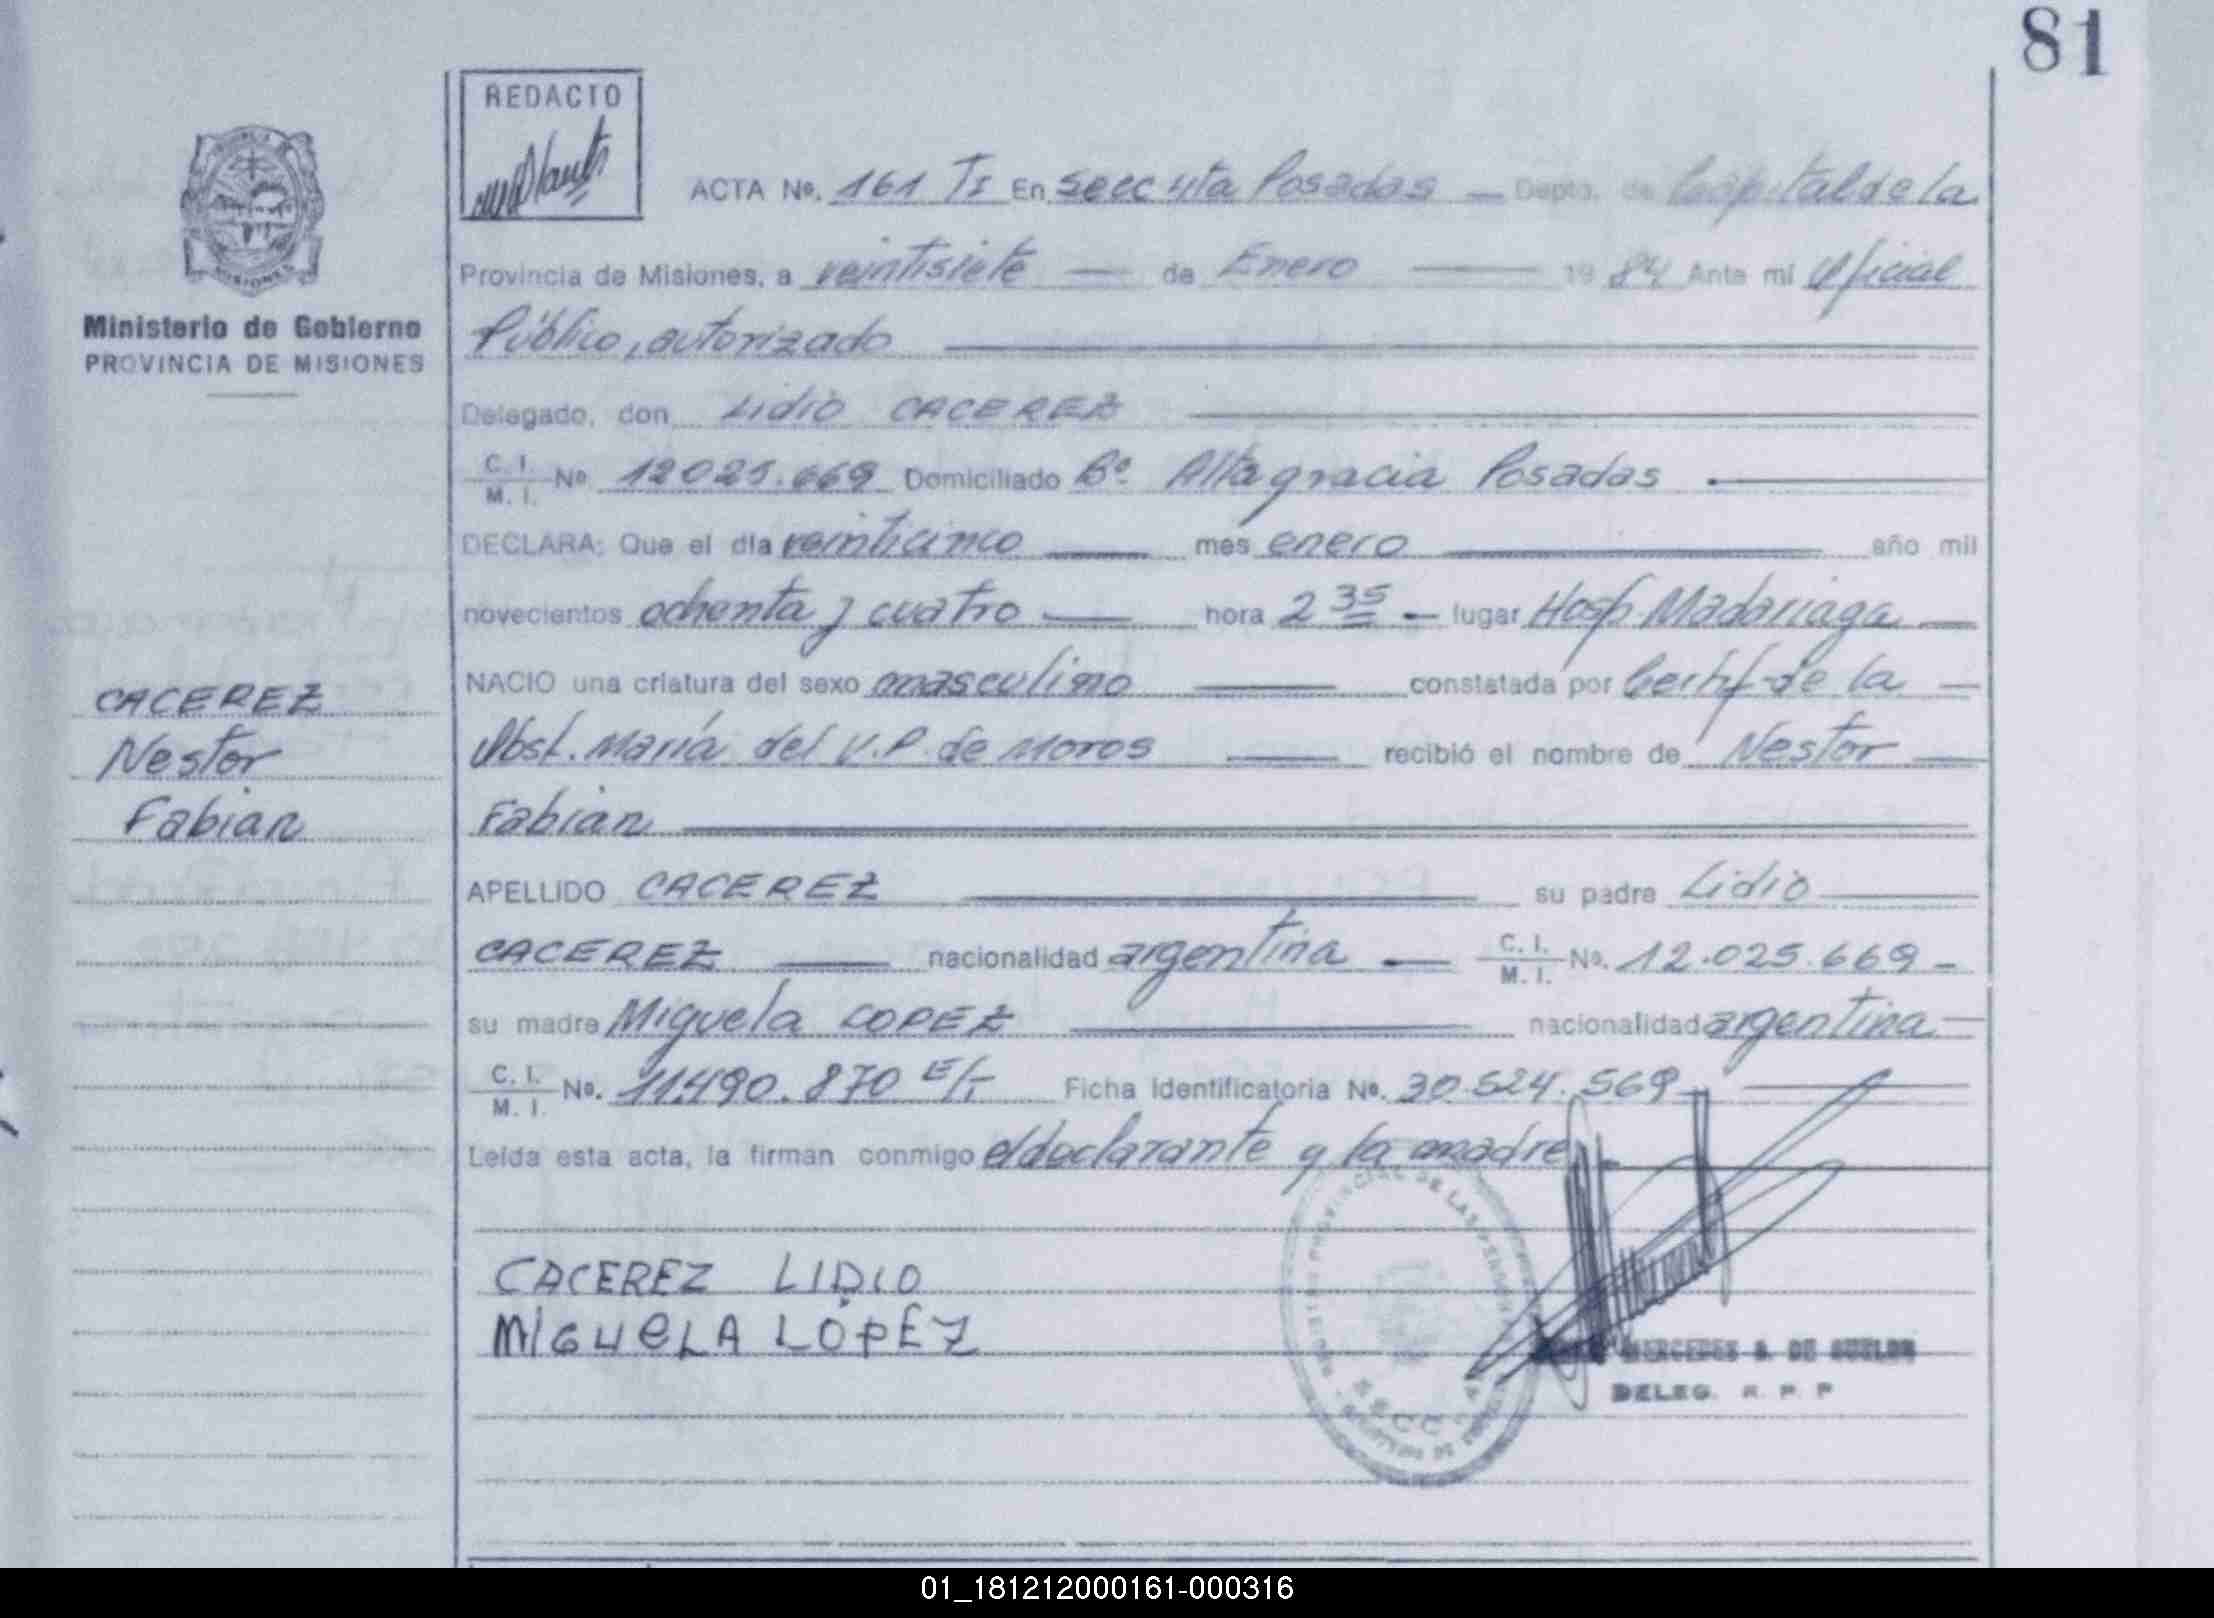 81
REDACTO
ACTA Nº. 161 TI En Secc 4ta Posadas — Depto. de Capital de la
Provincia de Misiones, a veintisiete — de Enero — 19 84 Ante mi Oficial
Ministerio de Gobierno
PROVINCIA DE MISIONES
Público, autorizado
Delegado, don Lidio CACEREZ
C. I. / M. I. Nº 12025.669 Domiciliado Bº Altagracia Posadas
DECLARA: Que el día veinticinco — mes enero — año mil
novecientos ochenta y cuatro — hora 2 35 — lugar Hosp Madariaga —
NACIO una criatura del sexo masculino — constatada por Certif de la —
Obst. María del V.P. de Moros — recibió el nombre de Nestor —
Fabian
CACEREZ
Nestor
Fabian
APELLIDO CACEREZ — su padre Lidio
CACEREZ — nacionalidad argentina — C. I. / M. I. Nº. 12.025.669 -
su madre Miguela LOPEZ — nacionalidad argentina —
C. I. / M. I. Nº. 11.490.870 E/T Ficha Identificatoria Nº. 30.524.569
Leída esta acta, la firman conmigo el declarante y la madre
CACEREZ LIDIO
MIGUELA LÓPEZ
PROVINCIAL DE LAS PERSONAS
MERCEDES S. DE
DELEG. R. P. P
01_181212000161-000316